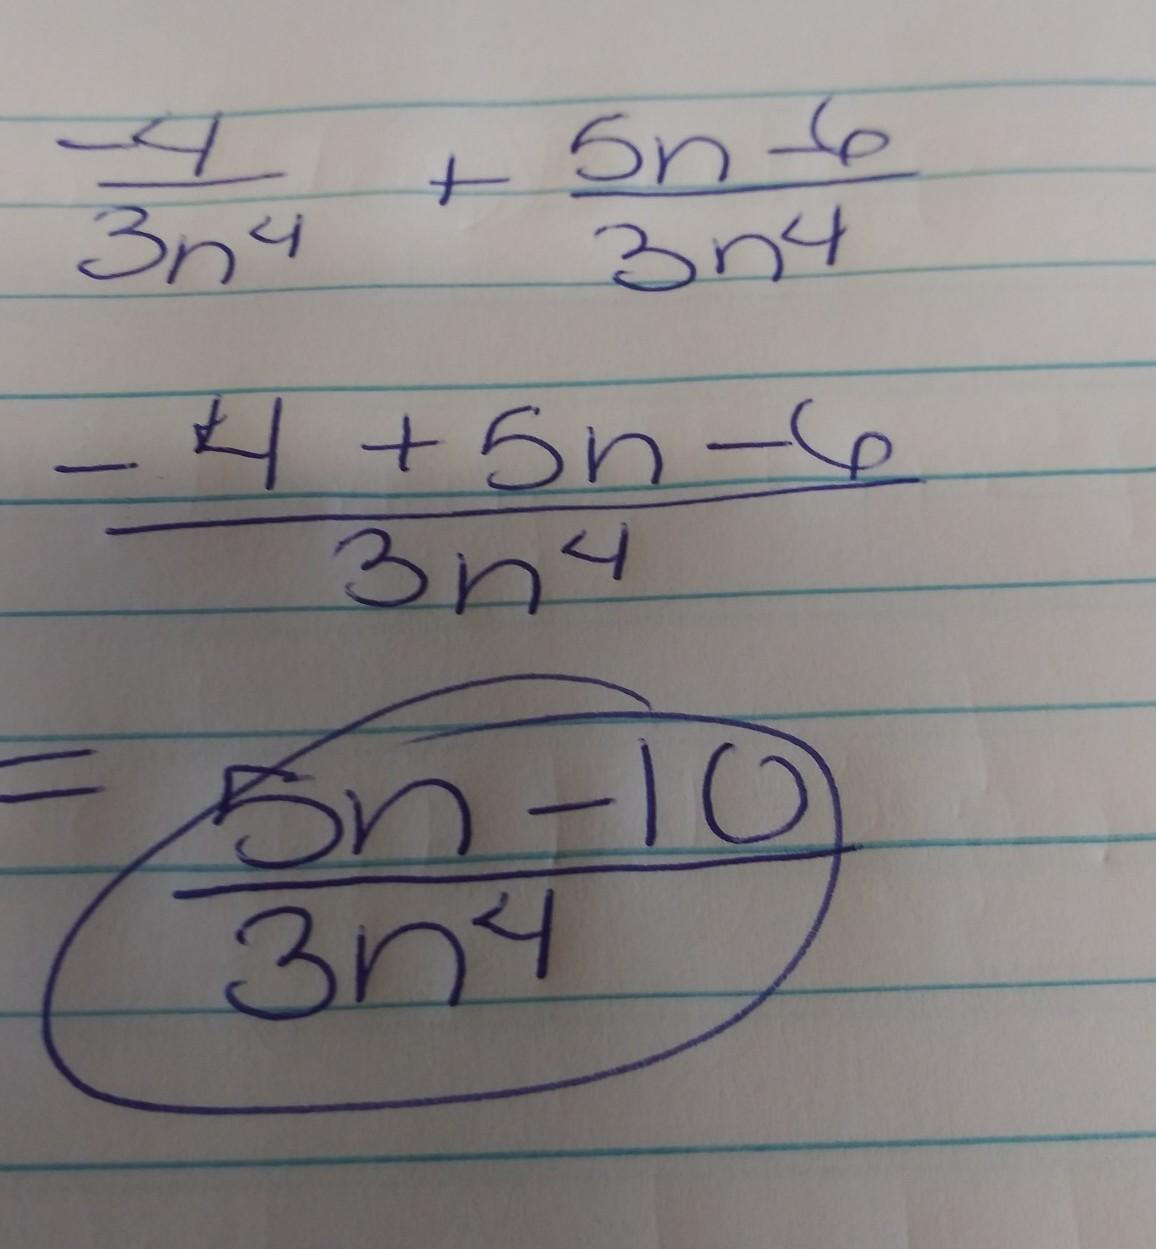 -4/3n⁴ + 5n-6/3n⁴
-4 + 5n - 6/3n⁴
= 5n - 10/3n⁴